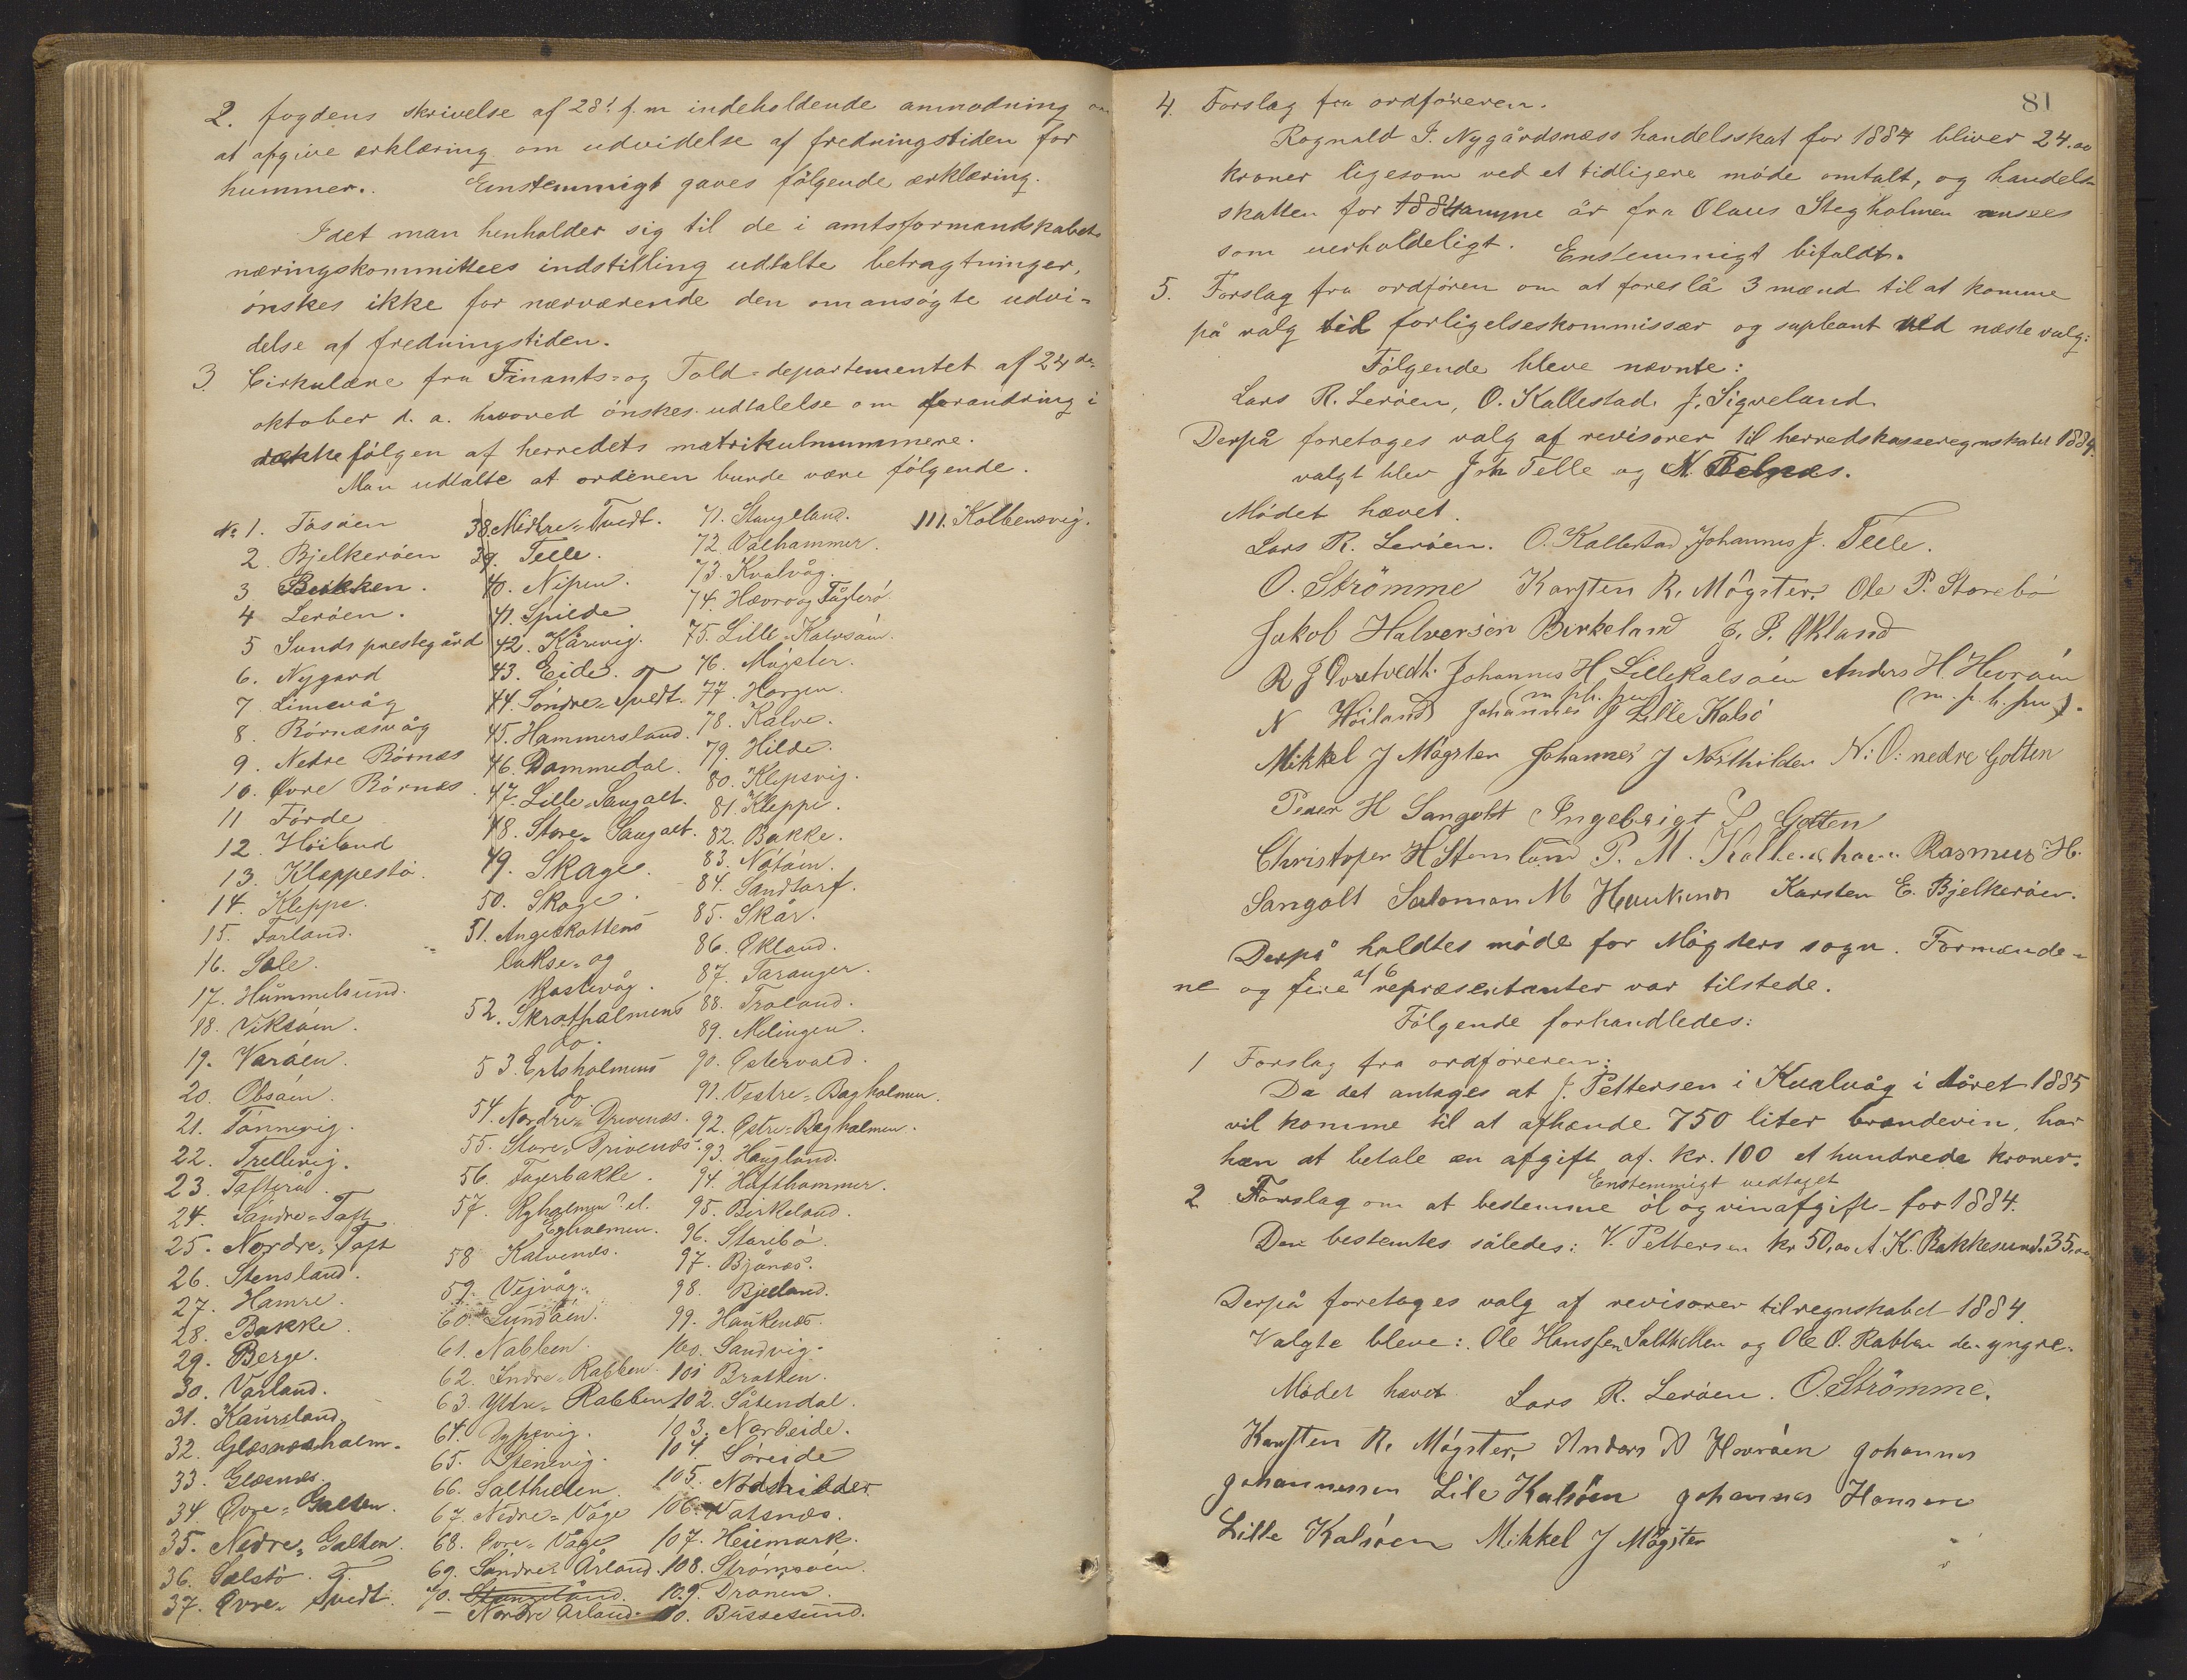 2. fogdens skrivelse af 28! f. m indeholdende anmodning om
at afgive erklæring om udvidelse af fredningstiden for
hummer.. Eenstemmigt gaves følgende erklæring.
Idet man henholder sig til de i amtsformandskabets
næringskommittees indstilling udtalte betragtninger,
ønskes ikke for nærværende den omansøgte udvi=
delse af fredningstiden.
3. Cirkulære fra Finants= og Told=departementet af 24de
oktober d. a. hvorved ønskes udtalelse om forandring i
rækkefølgen af herredets matrikulnummere.
Man udtalte at ordenen burde være følgende.
№ 1. Tøsøen
2. Bjelkerøen
3 Bekken.
4 Lerøen.
5 Sunds prestegård
6. Nygard
7. Limevåg
8. Børnæsvåg
9. Nedre Børnæs
10. Øvre Børnæs.
11 Førde
12. Høiland
13. Kleppestø.
14. Kleppe.
15. Forland.
16. Sele.
17. Hummelsund.
18. Viksøen.
19. Varøen.
20. Obsøen.
21. Tønnevig.
22. Trellevig.
23. Tofterø
24. Søndre=Toft
25. Nordre=Toft
26. Stensland.
27. Hamre.
28. Bakke.
29. Berge.
30. Vorland.
31. Kaursland
32. Glesnæsholm.
33. Glesnæs.
34. Øvre=Golten.
35. Nedre=Golten.
36. Golstø.
37. Øvre=Tvedt.
38. Midtre=Tvedt.
39. Telle.
40. Nipen.
41. Spilde
42. Kårevig.
43. Eide.
44. Søndre=Tvedt.
45. Hammersland.
46. Dommedal.
47. Lille=Sangolt.
48. Store=Sangolt.
49. Skage.
50. Skoge.
51. Angelskottens
lakse= og
kastevåg.
52. Skrotholmens
do.
53. Ertsholmens
do.
54. Nordre=Drivenæs.
55. Store=Drivenæs.
56. Fagerbakke.
57. Ryholmen? el.
Egholmen.
58 Kalvenæs.
59. Vejvåg.
60. Lundøen.
61. Nabben.
62. Indre=Rabben.
63. Ytre=Rabben
64. Dypevig.
65. Stenevig.
66. Salthellen.
67. Nedre=Våge
68. Øvre=Våge
69. Søndre=Årland.
70. Stangeland.
Nordre Årland.
71. Stangeland.
72. Valhammer.
73. Kvalvåg.
74. Hævrø og Fuglerø
75. Lille=Kalvsøen.
76. Møgster.
77. Horgen.
78. Kalve.
79. Hilde.
80. Klepsvig.
81. Kleppe.
82. Bakke.
83. Notøen.
84. Sandtorf.
85. Skår.
86. Økland.
87. Taranger.
88. Troland.
89. Melingen.
90. Østervold.
91. Vestre=Bagholmen.
92. Østre=Bagholmen.
93. Haugland.
94. Hufthammer.
95. Birkeland.
96. Storebø.
97. Bjånæs.
98. Bjelland.
99. Haukenæs.
100. Sandvig.
101 Bratten.
102. Såtendal.
103. Nordeide.
104. Søreide
105. Nodthilder
106. Vatsnæs.
107. Heiemark.
108. Strømsøen.
109. Drønen.
110. Bussesund.
111. Kolbensvig.
81
4. Forslag fra ordføreren.
Rognald J. Nygårdsnæss handelsskat for 1884 bliver 24.00
kroner ligesom ved et tidligere møde omtalt, og handels=
skatten for 1884 samme år fra Olaus Stegholmen ansees
som uerholdeligt. Enstemmigt bifaldt.
5. Forslag fra ordføren om at foreslå 3 mænd til at komme
på valg til forligelseskommissær og supleant ved næste valg:
Følgende bleve nævnte:
Lars R. Lerøen, O. Kallestad, J. Sigveland
Derpå foretoges valg af revisorer til herredskasseregnskabet 1884.
valgt blev Joh Telle og N. Telnæs.
Mødet hævet.
Lars R. Lerøen. O. Kallestad Johannes J. Telle.
O. Strømme Karsten R. Møgster. Ole P. Storebø
Jakob Halversen Birkeland J. P. Økland
R J Øvretvedt. Johannes H Lillekalsøen Anders H. Hevrøen
(m p h. pen) (m. p. h. pen).
N Høiland Johannes J Lille Kalsø
Mikkel J Møgster Johannes J Northilder N: O: nedre Golten
Peder H Sangolt Ingebrigt Golten
Christofer H Stensland P. M. Rasmus H.
Sangolt Salomon M Haukenæs Karsten E. Bjelkerøen.
Derpå holdtes møde for Møgsters sogn. Formænde=
ne og fire af 6 repræsentanter var tilstede.
Følgende forhandledes:
1 Forslag fra ordføreren:
Da det antages at J. Pettersen i Kvalvåg i året 1885
vil komme til at afhænde 750 liter brændevin, har
han at betale en afgift af kr. 100 et hundrede kroner.
Enstemmigt vedtaget
2 Forslag om at bestemme øl og vinafgift for 1884.
Den bestemtes således: V. Pettersen kr 50,00 A. K. Bakkesund. 35,00
Derpå foretoges valg af revisorer til regnskabet 1884.
Valgte bleve: Ole Hanssen Salthellen og Ole O. Rabben den yngre.
Mødet hævet. Lars R. Lerøen. O. Strømme.
Karsten R. Møgster, Anders H Hevrøen Johannes
Johannessen Lile Kalsøen Johannes Hansen
Lille Kalsøen Mikkel J Møgster